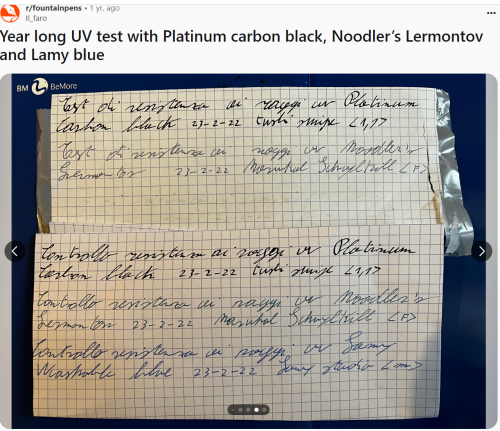 r/fountainpens • 1 yr. ago
Il_faro
Year long UV test with Platinum carbon black, Noodler's Lermontov
and Lamy blue
BM BeMore
Test di resistenza ai raggi uv Platinum
Carbon black 23-2-22 <1,1>
Test di resistenza ai raggi uv Noodler's
Lermontov 23-2-22 <F>
Controllo resistenza ai raggi uv Platinum
Carbon black 23-2-22 <1,1>
Controllo resistenza ai raggi uv Noodler's
Lermontov 23-2-22 <F>
Controllo resistenza ai raggi uv Lamy
Washable blue 23-2-22 Lamy studio <m>